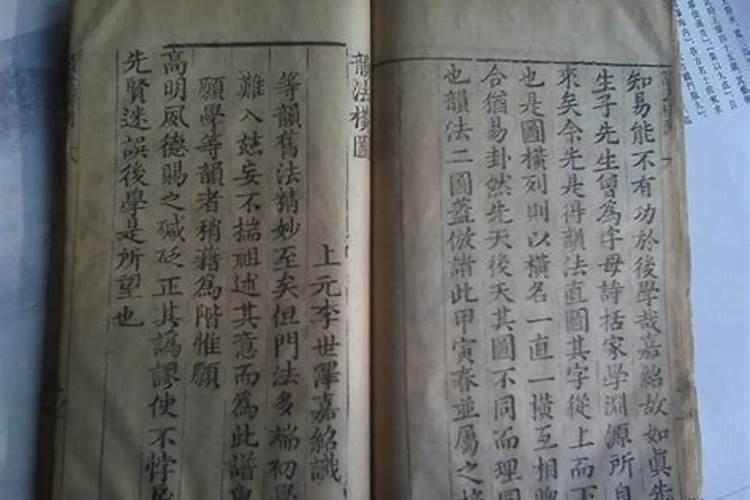 知易能不有功於後學哉嘉紹故如真先
生子先生曾為字母詩括家學淵源所自
來矣余先是得韻法直圖其字從上而下
也是圖橫列則以橫名一直一橫互相
合猶易卦然先天後天其圖不同而理同
也韻法二圖蓋倣諸此甲寅春並屬之
韻法橫圖
上元李世澤嘉紹識
等韻舊法精妙至矣但門法多端初學
難入茲妄不揣祖述其意而為此譜
願學等韻者稍藉為階惟願
高明風德賜之碱砭正其譌謬使不悖
先賢迷誤後學是所望也